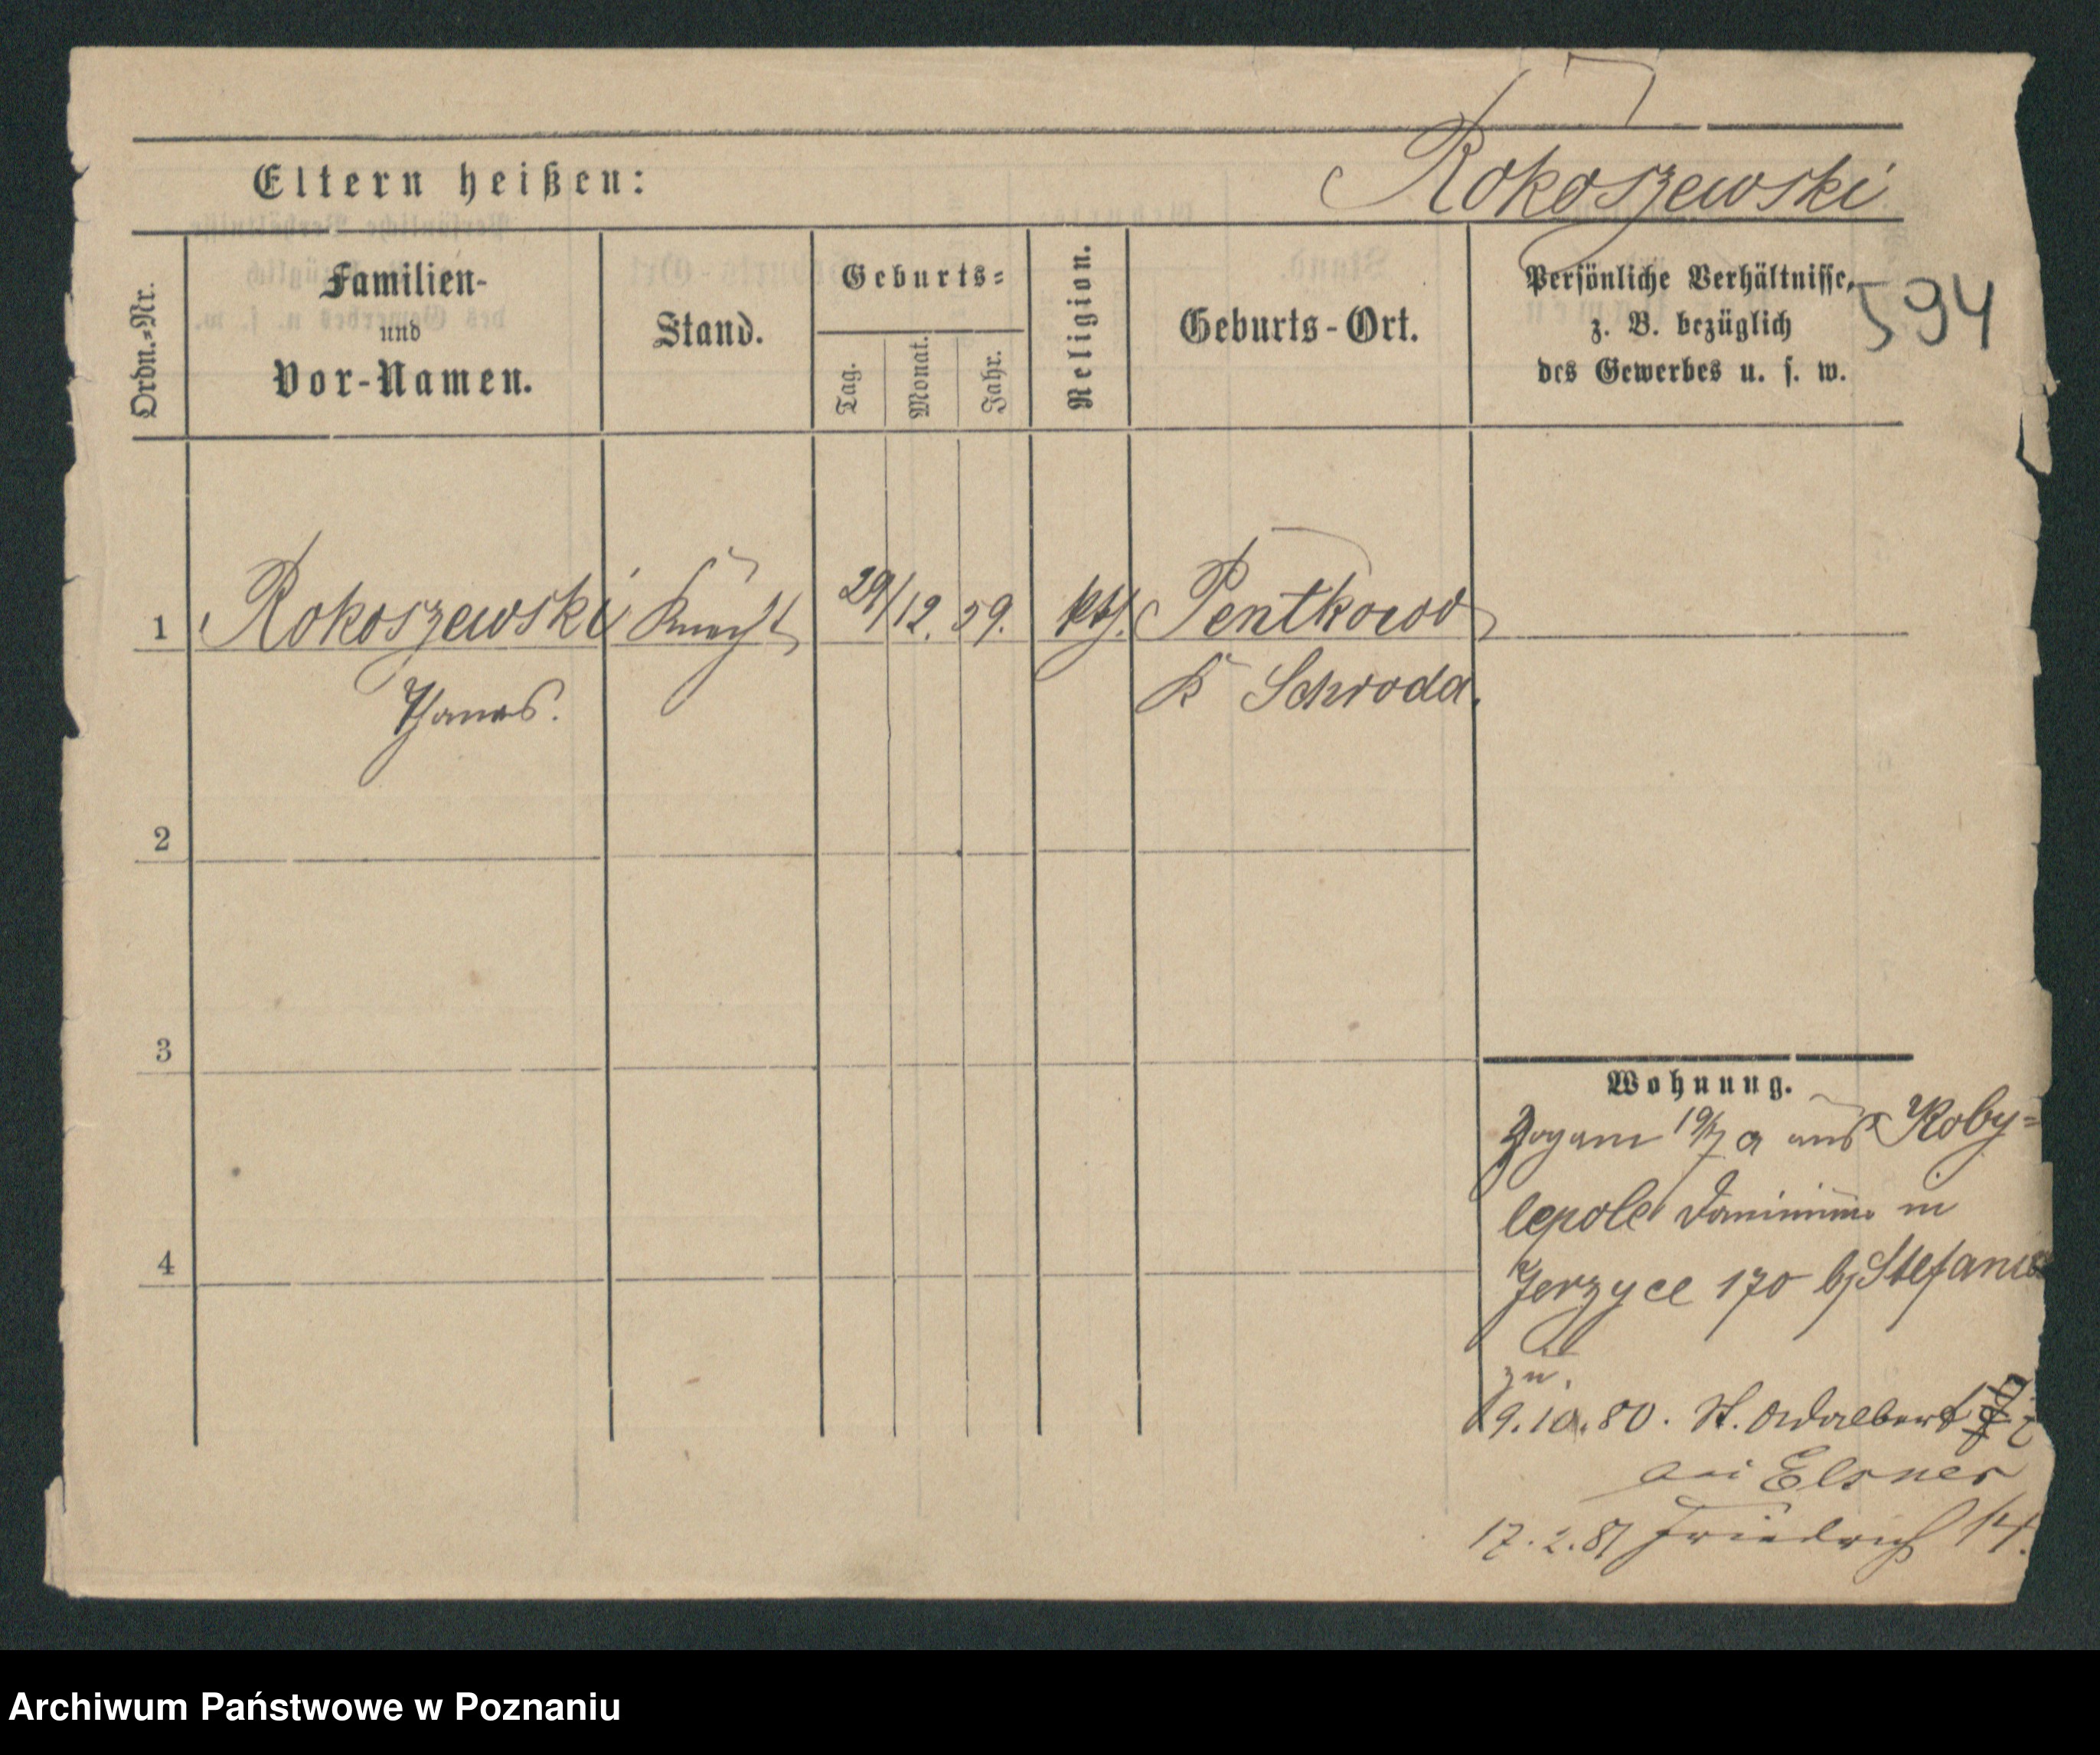 Eltern heißen:
Rokoszewski
Ordn.=Nr.
Familien-
und
Vor-Namen.
Stand.
Geburts=
Tag.
Monat.
Jahr.
Religion.
Geburts-Ort.
Persönliche Verhältnisse,
z. B. bezüglich
des Gewerbes u. s. w.
594
1 Rokoszewski Knecht 29/12. 59. kth. Pentkowo
Thomas. K Schroda.
2
3
4
Wohnung.
Zog am 19/7 a aus Koby=
lepole Dominium in
Jerzyce 170 bj Stefan
zu.
9.10.80. St. Adalbert
bei Elsner
17.2.81 Friedrich 14.
Archiwum Państwowe w Poznaniu